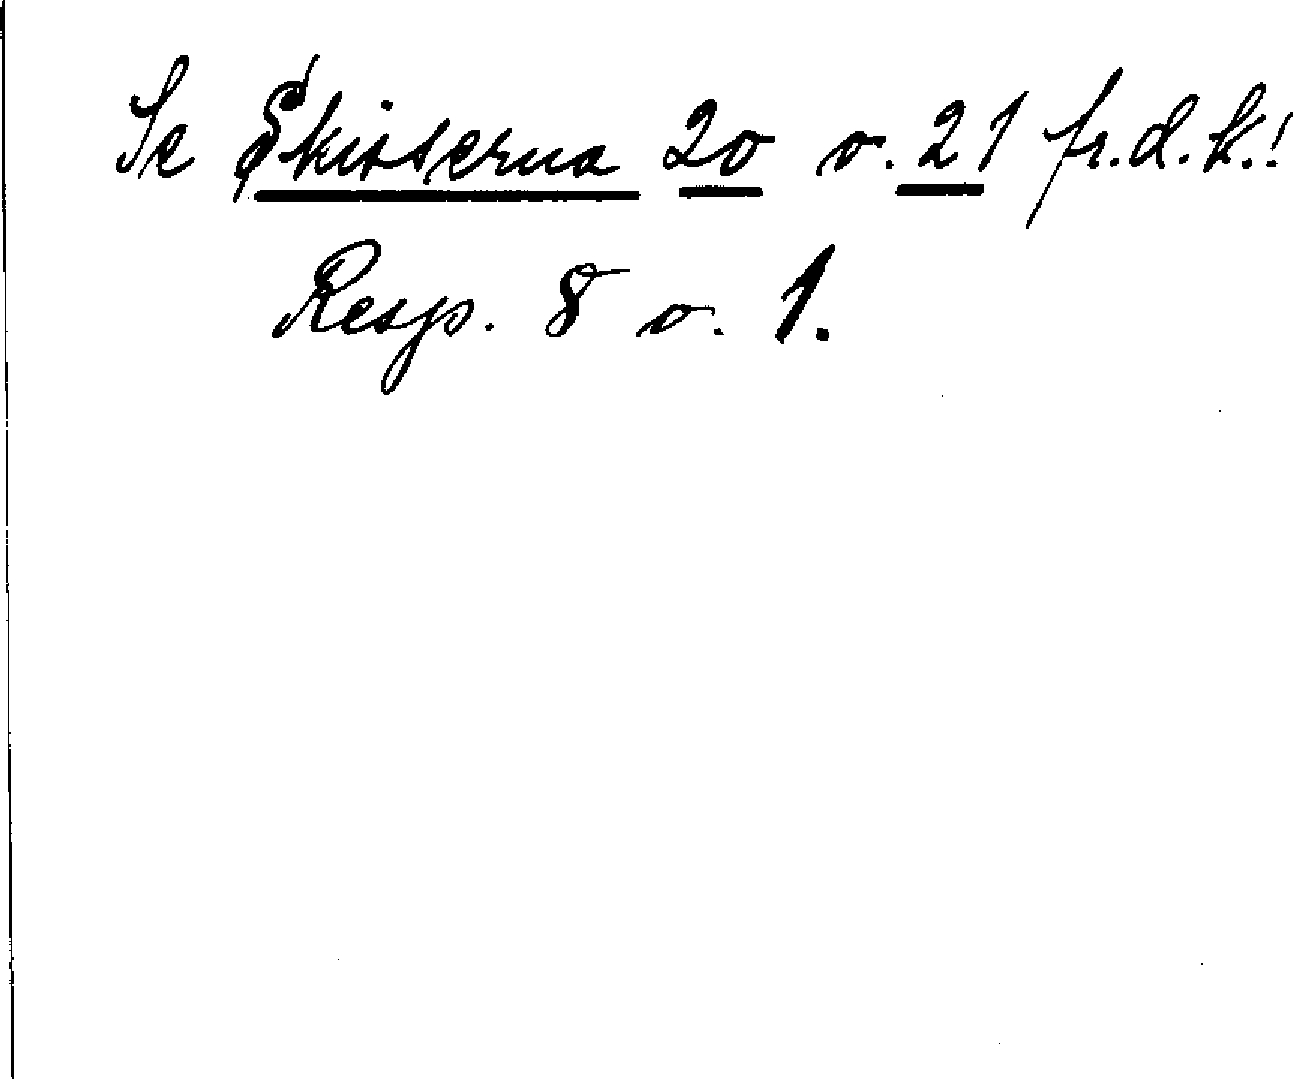 Se Skisserna 20 o. 21 fr.d.k.!
Resp. 8 o. 1.